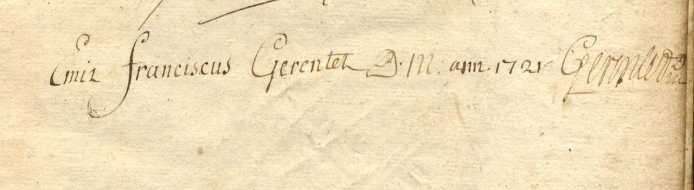 Emit franciscus Gerentet D. M. ann. 1721 Gerentet